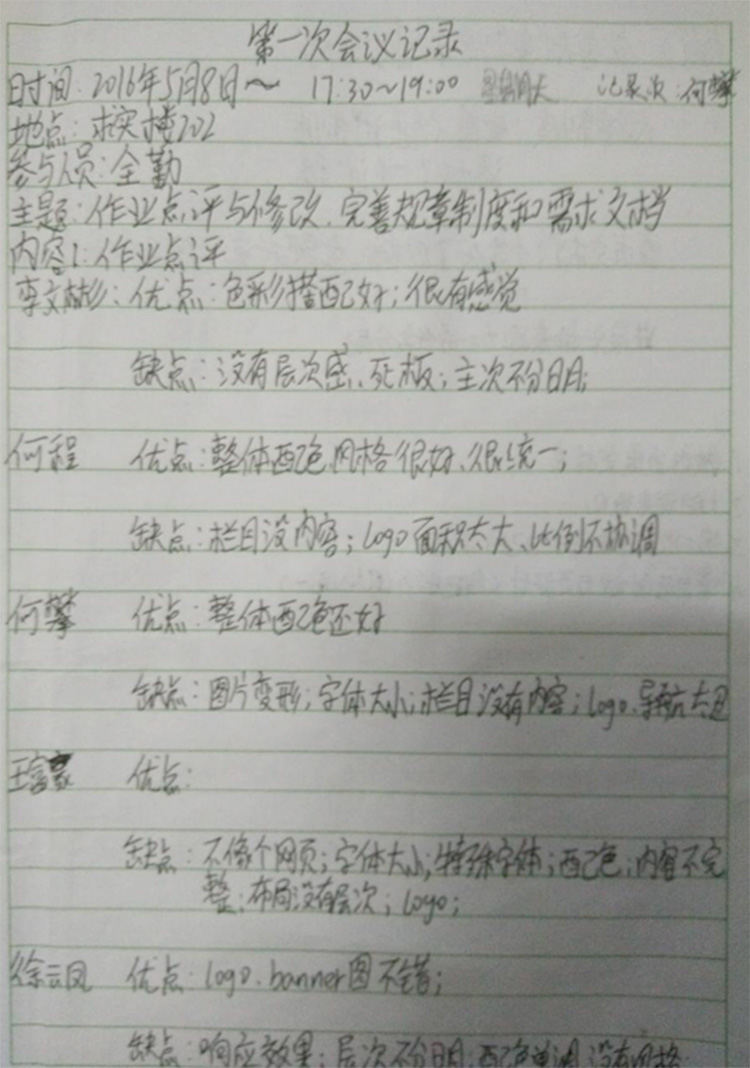 第一次会议记录
时间:2016年5月8日~ 17:30~19:00 星期天 记录次:何攀
地点:求实楼202
参与人员:全勤
主题:作业点评与修改、完善规章制度和需求文档
内容1:作业点评
李文彬:优点:色彩搭配好;很有感觉
缺点:没有层次感、死板;主次不分明;
何程 优点:整体配色、风格很好、很统一;
缺点:栏目没内容;logo面积太大、比例不协调
何攀 优点:整体配色还好
缺点:图片变形;字体大小;栏目没有内容;logo、导航太丑
王富豪 优点:
缺点:不像个网页;字体大小;特殊字体;配色;内容不完
整;布局没有层次;logo;
徐云凤 优点:logo、banner图不错;
缺点:响应效果;层次不分明;配色单调、没有风格